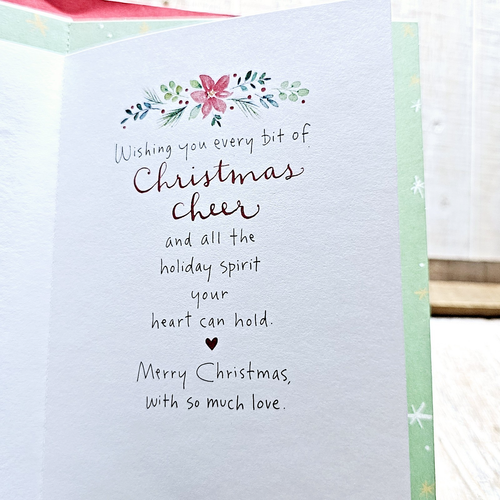 Wishing you every bit of
Christmas
cheer
and all the
holiday spirit
your
heart can hold.
Merry Christmas,
with so much love.